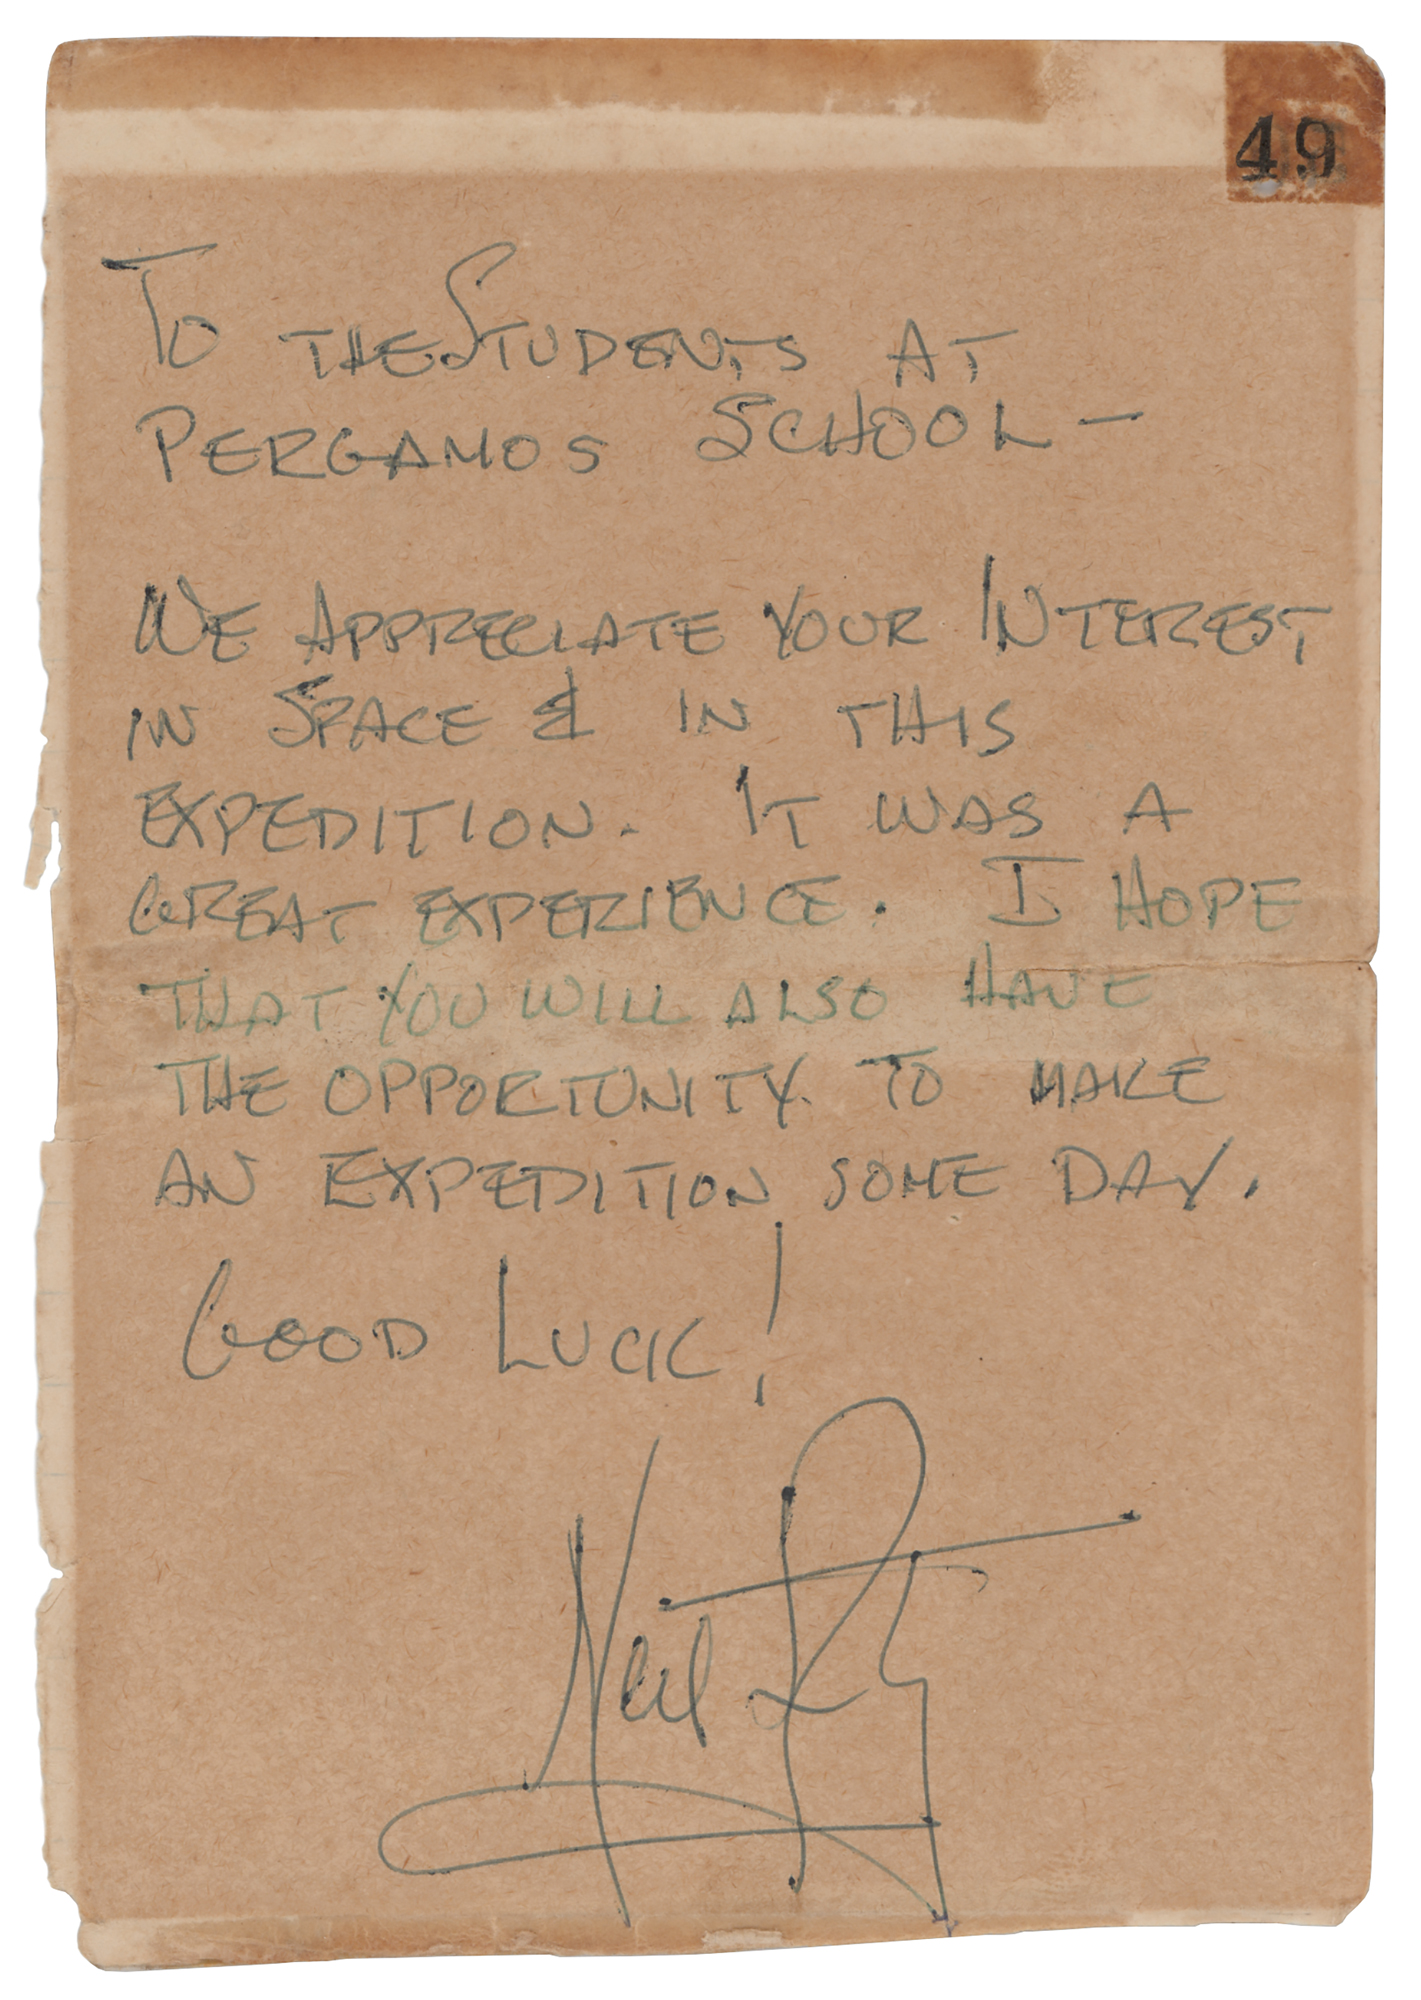 49
To THE STUDENTS AT
PERGAMOS SCHOOL –
WE APPRECIATE YOUR INTEREST
IN SPACE & IN THIS
EXPEDITION. IT WAS A
GREAT EXPERIENCE. I HOPE
THAT YOU WILL ALSO HAVE
THE OPPORTUNITY TO MAKE
AN EXPEDITION SOME DAY.
GOOD LUCK!
Neil